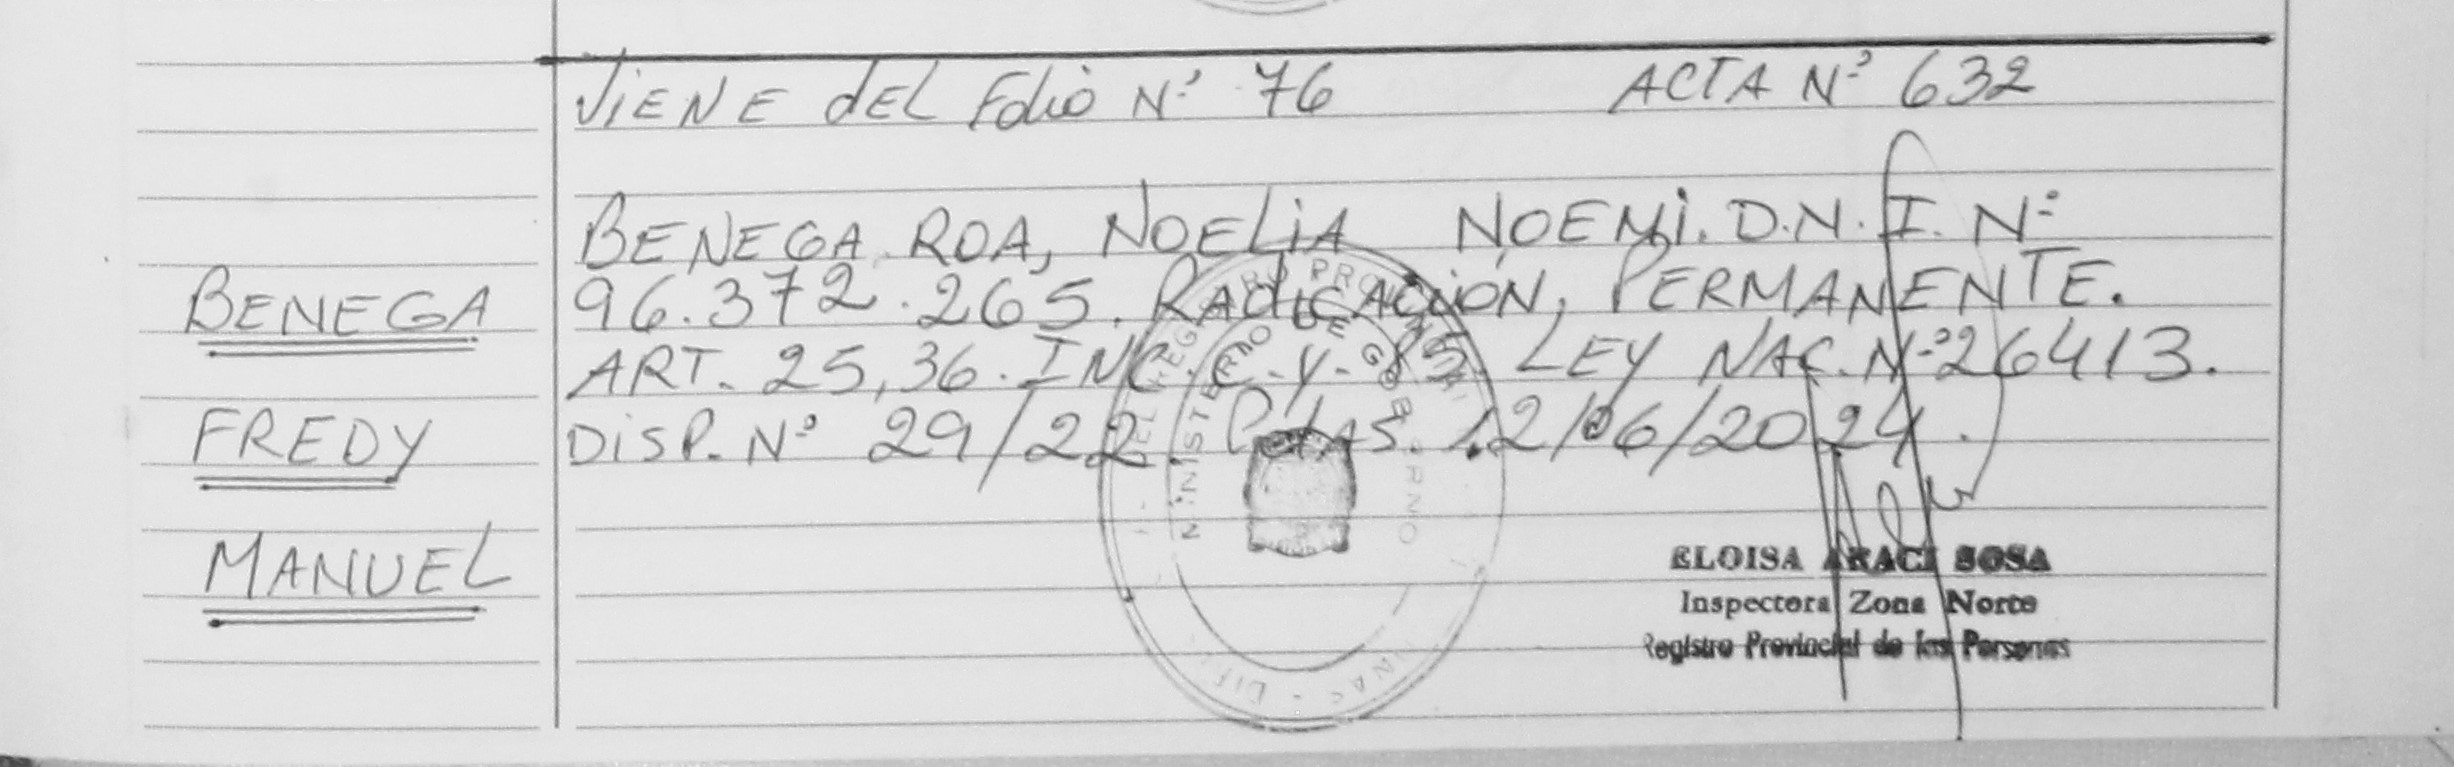 VIENE dEL Folio Nº 76 ACTA Nº 632
BENEGA ROA, NOELIA NOEMI. D.N.I. Nº
96.372.265. RAdICACIÓN, PERMANENTE.
ART. 25,36. INC. C. y. 85. LEY NAC. Nº 26413.
DISP. Nº 29/22. 12/06/2024.
BENEGA
FREDY
MANUEL
MINISTERIO DE GOBIERNO
ELOISA ARACI SOSA
Inspectora Zona Norte
Registro Provincial de las Personas